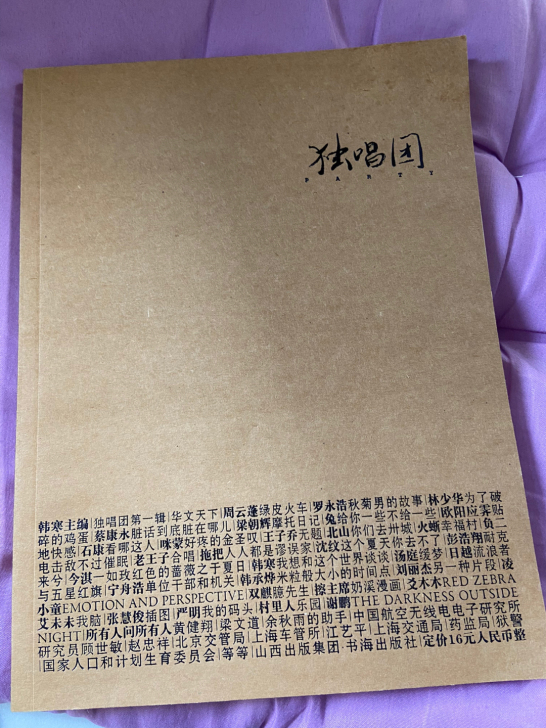 独唱团
PARTY
韩寒主编|独唱团第一辑|华文天下|周云蓬绿皮火车|罗永浩秋菊男的故事|林少华为了破
碎的鸡蛋|蔡康永脏话到底脏在哪儿|梁朝辉摩托日记|兔给你一些不给一些|欧阳应霁贴
地快感|石康看哪这人|咪蒙好疼的金圣叹|王子乔无题|北山你们去卅城|火蜥幸福村|负二
电击敌不过催眠|老王子合唱|拖把人人都是谬误家|沈纹这个夏天你去不了|彭浩翔耐克
来兮|今淇一如玫红色的蔷薇之于夏日|韩寒我想和这个世界谈谈|汤庭缓梦|日越流浪者
与五星红旗|宁舟浩单位干部和机关|韩承烨米粒般大小的时间点|刘丽杰另一种片段|凌
小童EMOTION AND PERSPECTIVE|双麒麞先生|檫主席奶溪漫画|爻木木RED ZEBRA
艾未未我脑|张慧俊插图|严明我的码头|村里人乐园|谢鹏THE DARKNESS OUTSIDE
NIGHT|所有人问所有人黄健翔|梁文道|余秋雨的助手|中国航空无线电电子研究所
研究员顾世敏|赵忠祥|北京交管局|上海车管所|江艺平|上海交通局|药监局|狱警
|国家人口和计划生育委员会|等等|山西出版集团·书海出版社|定价16元人民币整